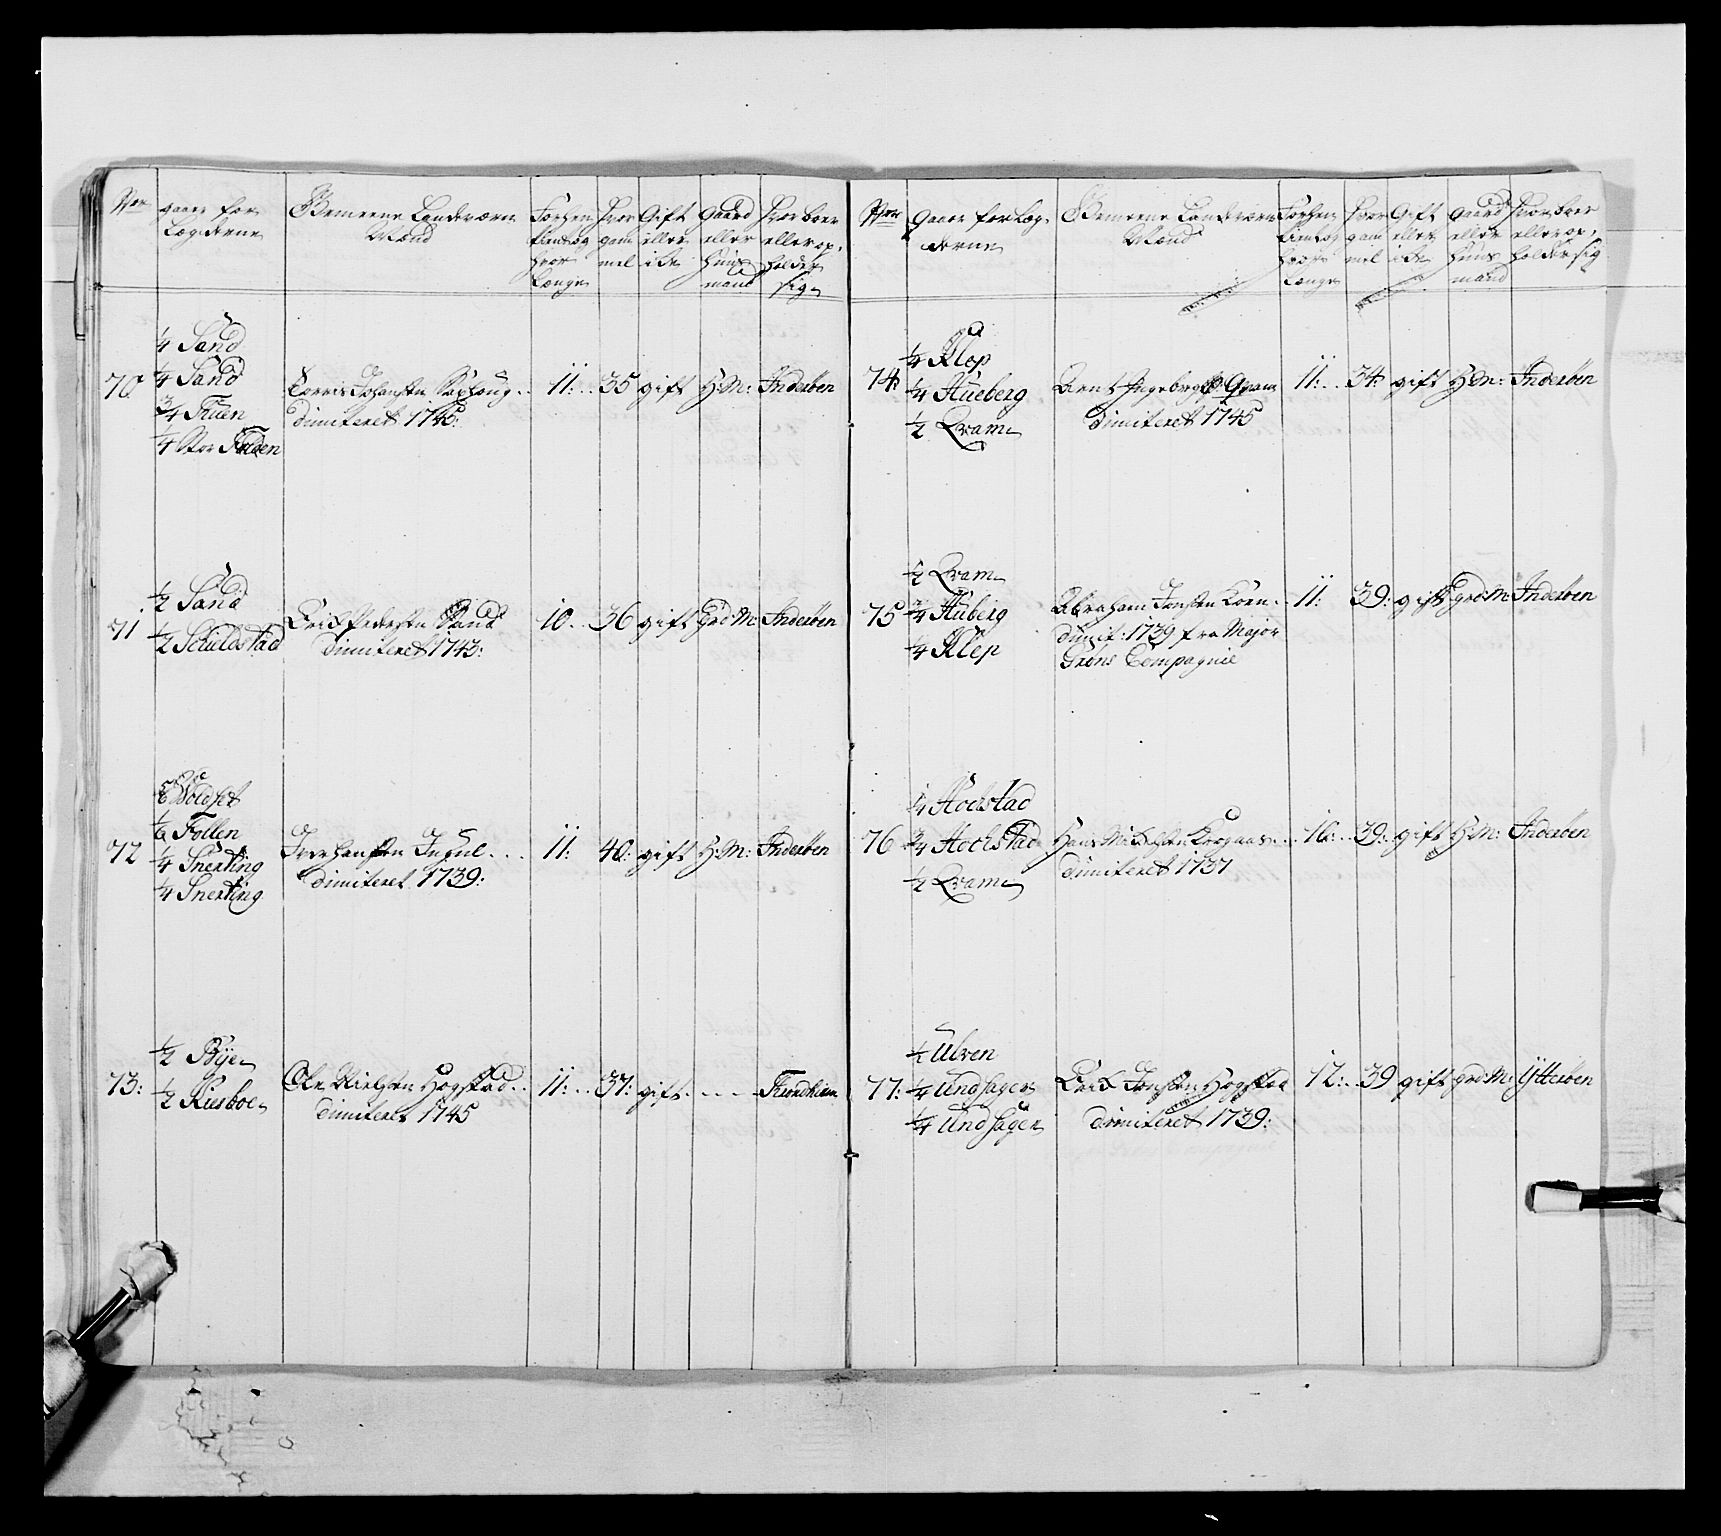 Nor
gaar for
Legderne
Gemeene Landværn
Mænd
Forhen
tient og
hvor
Længe
Hvor
gam
mel
Gift
eller
icke
gaard
eller
Huus
mand
Hvor boer
eller op,
holder
sig
70
1/4 Sand
1/4 Sand
3/4 Truen
1/4 Stor
Johansen
dimiteret 1745:
11: 35 gift H:M: Inderøen
71
1/2 Sand
1/2 Schieldstad
Erich Pedersen Sand
dimiteret 1743:
10 36 gift Grd:M: Inderøen
72
5/6 Woldset
1/6 Follen
1/4 Snerting
1/4 Snerting
Iver Hansen
dimiteret 1739:
11: 40: gift H:M: Inderøen
73:
1/2 Bye
1/2 Riesboe
Ole Nielsen Hogstad
dimiteret 1745
11: 37: gift Trondhiem
Nor
gaar for Leg,
derne
Gemeene Landværn
Mænd
Forhen
tient og
hvor
Længe
Hvor
gam
mel
Gift
eller
icke
gaard
eller
Huus
mand
Hvor boer
eller op,
holder sig
74:
1/4 Klep
1/4 Hueberg
1/2 Qvam
Arent Ingebrigts: Qvam
dimiteret 1745
11: 34: gift H:M: Inderøen
75
1/2 Qvam
1/4 Huberg
1/4 Klep
Abraham Jensen
dimit: 1739 fra Major
Grøns Compagnie
11: 39: gift Grd:M: Inderøen
76
1/4 Hochstad
3/4 Hochstad
1/2 Qvam
Hans Michelsen Korsaas
dimiteret 1737
16: 39: gift H:M: Inderøen
77:
1/2 Ulven
1/4 Undsager
1/4 Undsager
Erich Jensen Hogstad
dimiteret 1739:
12: 39 gift Grd:M: Ytterøen